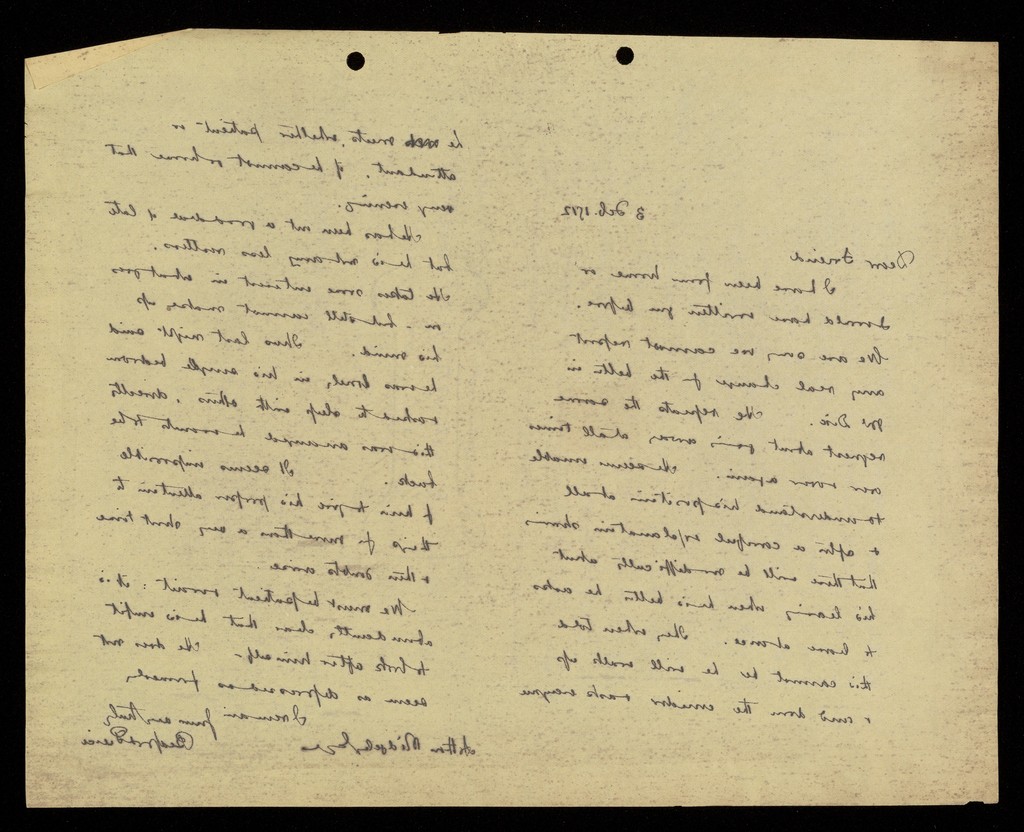 3 Feb. 1912
Dear Friend
I have been from home or
I would have written you before.
We are sorry we cannot report
any real change for the better in
Mr Dix. He repeats the same
request about going away, at all times
over & over again. He seems unable
to understand his position at all
& after a careful explanation
that there will be no difficulty about
his leaving when he is better he asks
to leave at once. Then when told
this cannot be he will walk up
& down the corridor & ask everyone
he meets, whether patient or
attendant, if he cannot go home that
very evening.
He has been out a good deal of late
but he is not any less restless.
He takes some interest in what goes
on - but still cannot make up
his mind. Thus last night said
he was lonely in his single bedroom
& asked to sleep with others, directly
this was arranged he wants to be
back. It seems impossible
for him to give his proper attention to
things for more than a very short time
& then doubts arise
We must be patient & wait: it is
abundantly clear that he is unfit
to look after himself. He does not
seem as depressed as formerly,
I remain Yours very truly
Bedford Pierce